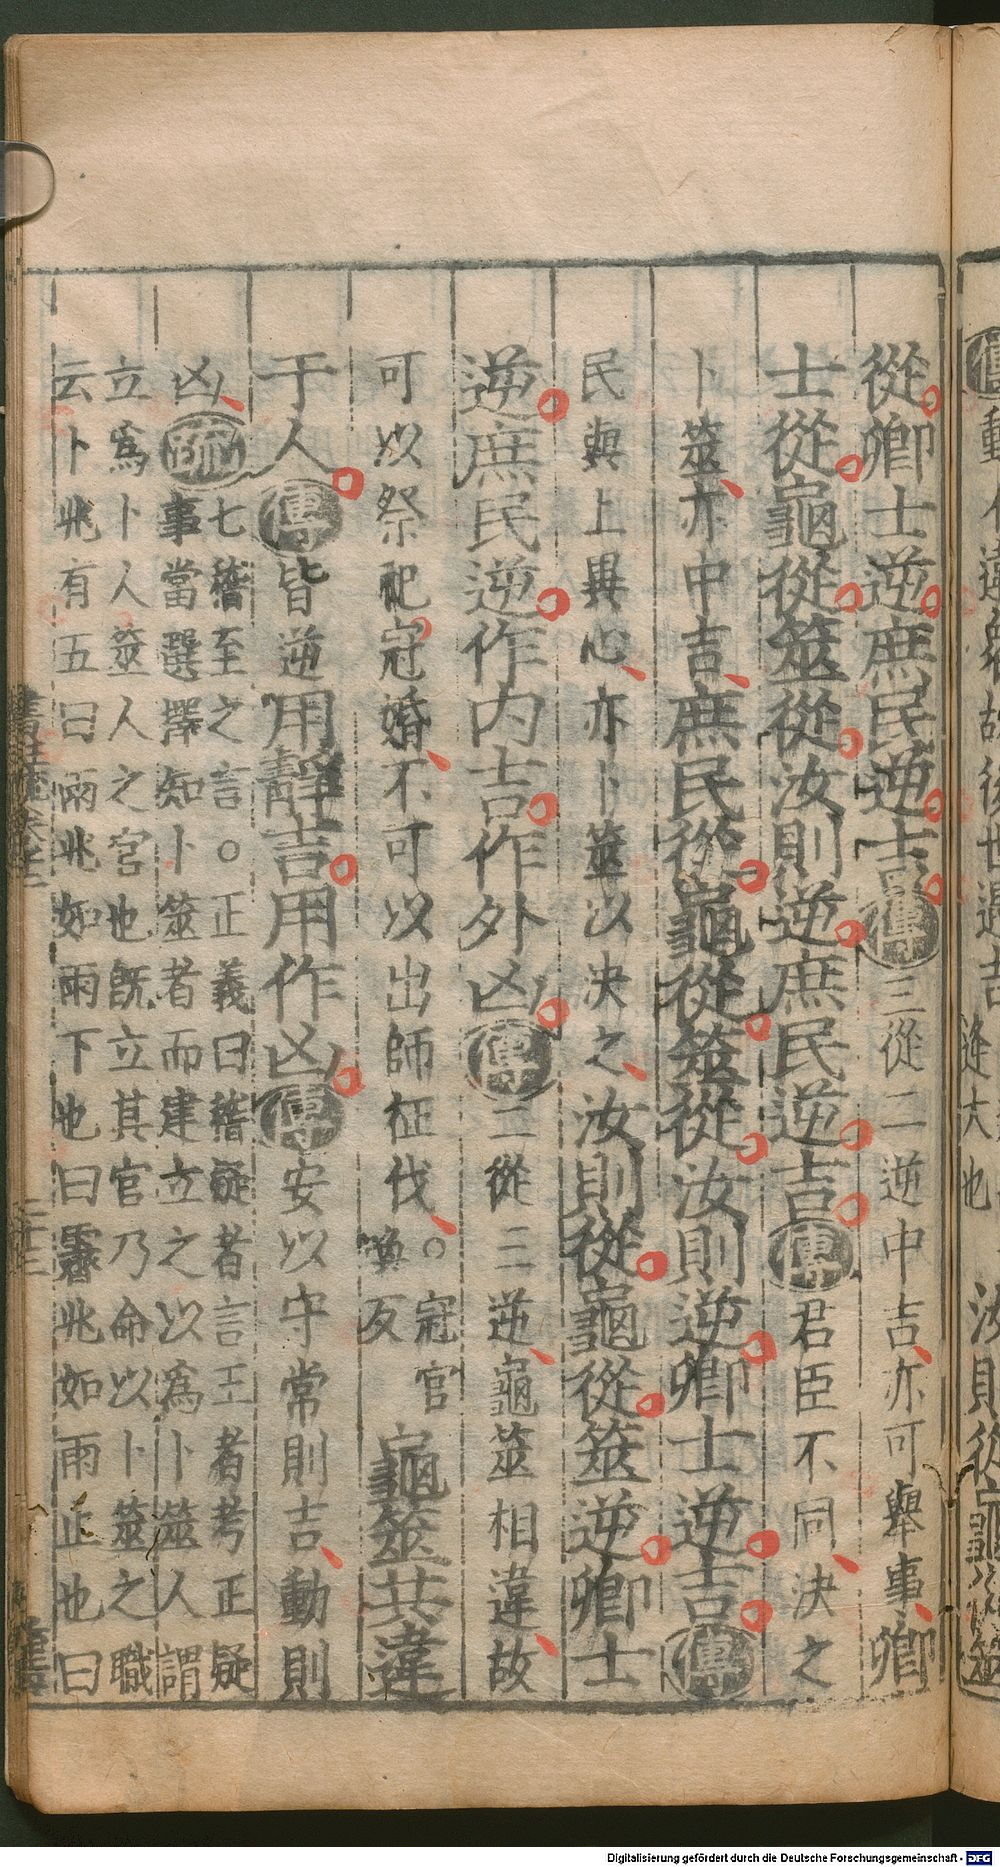 從卿士逆庶民逆吉傳三從二逆中吉亦可舉事卿
士從龜從筮從汝則逆庶民逆吉傳君臣不同決之
卜筮亦中吉庶民從龜從筮從汝則逆卿士逆吉傳
民與上異心亦卜筮以決之汝則從龜從筮逆卿士
逆庶民逆作內吉作外凶傳二從三逆龜筮相違故
可以祭祀冠婚不可以出師征伐○冠官喚反龜筮共違
于人傳皆逆用靜吉用作凶傳安以守常則吉動則
凶疏七稽至之言○正義曰稽疑者言王者考正疑
事當選擇知卜筮者而建立之以爲卜筮人謂
立爲卜人筮人之官也既立其官乃命以卜筮之職
云卜兆有五曰雨兆如雨下也曰霽兆如雨止也曰
書註疏卷十二
二十三
逢大也
汝則從龜從筮
Digitalisierung gefördert durch die Deutsche Forschungsgemeinschaft - DFG